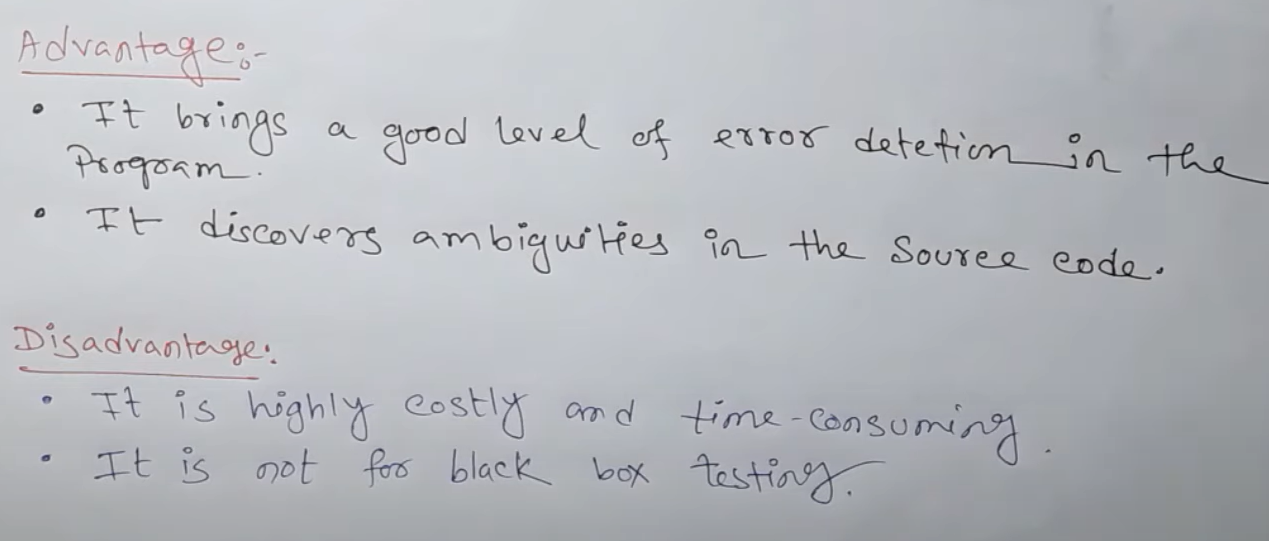 Advantage:-
• It brings a good level of error detetion in the
Program.
• It discovers ambiguities in the Source code.
Disadvantage:
• It is highly costly and time-consuming.
• It is not for black box testing.